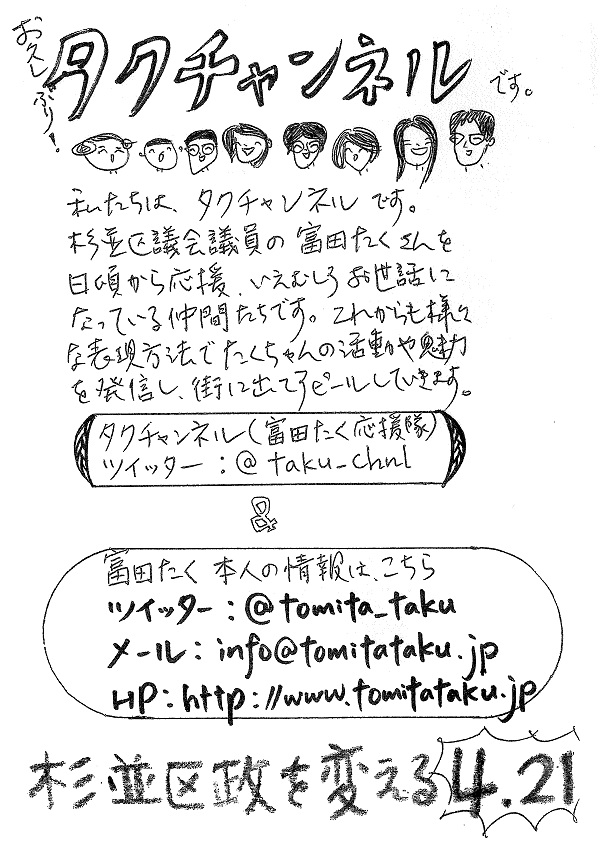 お久しぶり！
タクチャンネルです。
私たちは、タクチャンネルです。
杉並区議会議員の富田たくさんを
日頃から応援、いえむしろお世話に
なっている仲間たちです。これからも様々
な表現方法でたくちゃんの活動や魅力
を発信し、街に出てアピールしていきます。
タクチャンネル(富田たく応援隊)
ツイッター：@taku_chnl
&
富田たく本人の情報は、こちら
ツイッター：@tomita_taku
メール：info@tomitataku.jp
HP：http://www.tomitataku.jp
杉並区政を変える4.21